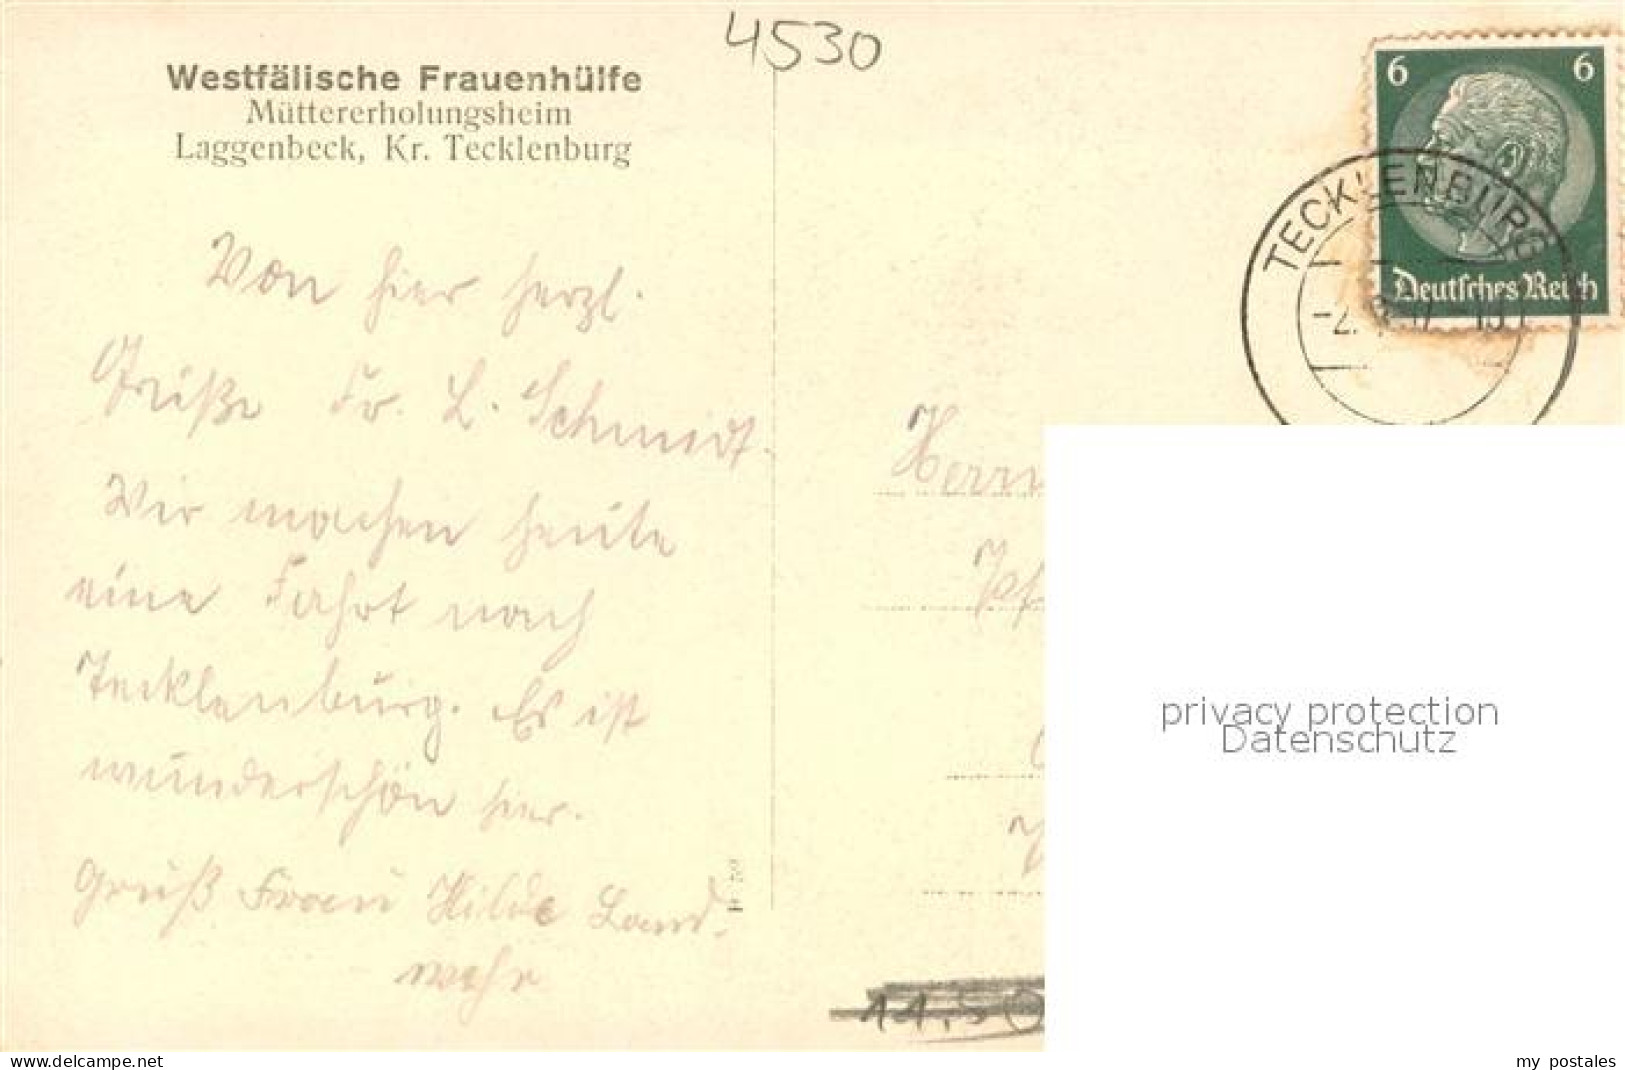 4530
Westfälische Frauenhülfe
Müttererholungsheim
Laggenbeck, Kr. Tecklenburg
6 6
Deutsches Reich
TECKLENBURG
Von hier herzl.
Grüße Fr. L. Schmidt.
Wir machen heute
eine Fahrt nach
Tecklenburg. Es ist
wunderschön hier.
Gruß Frau Hilde Land-
wehr
Herrn
privacy protection
Datenschutz
11.50
www.delcampe.net
my postales